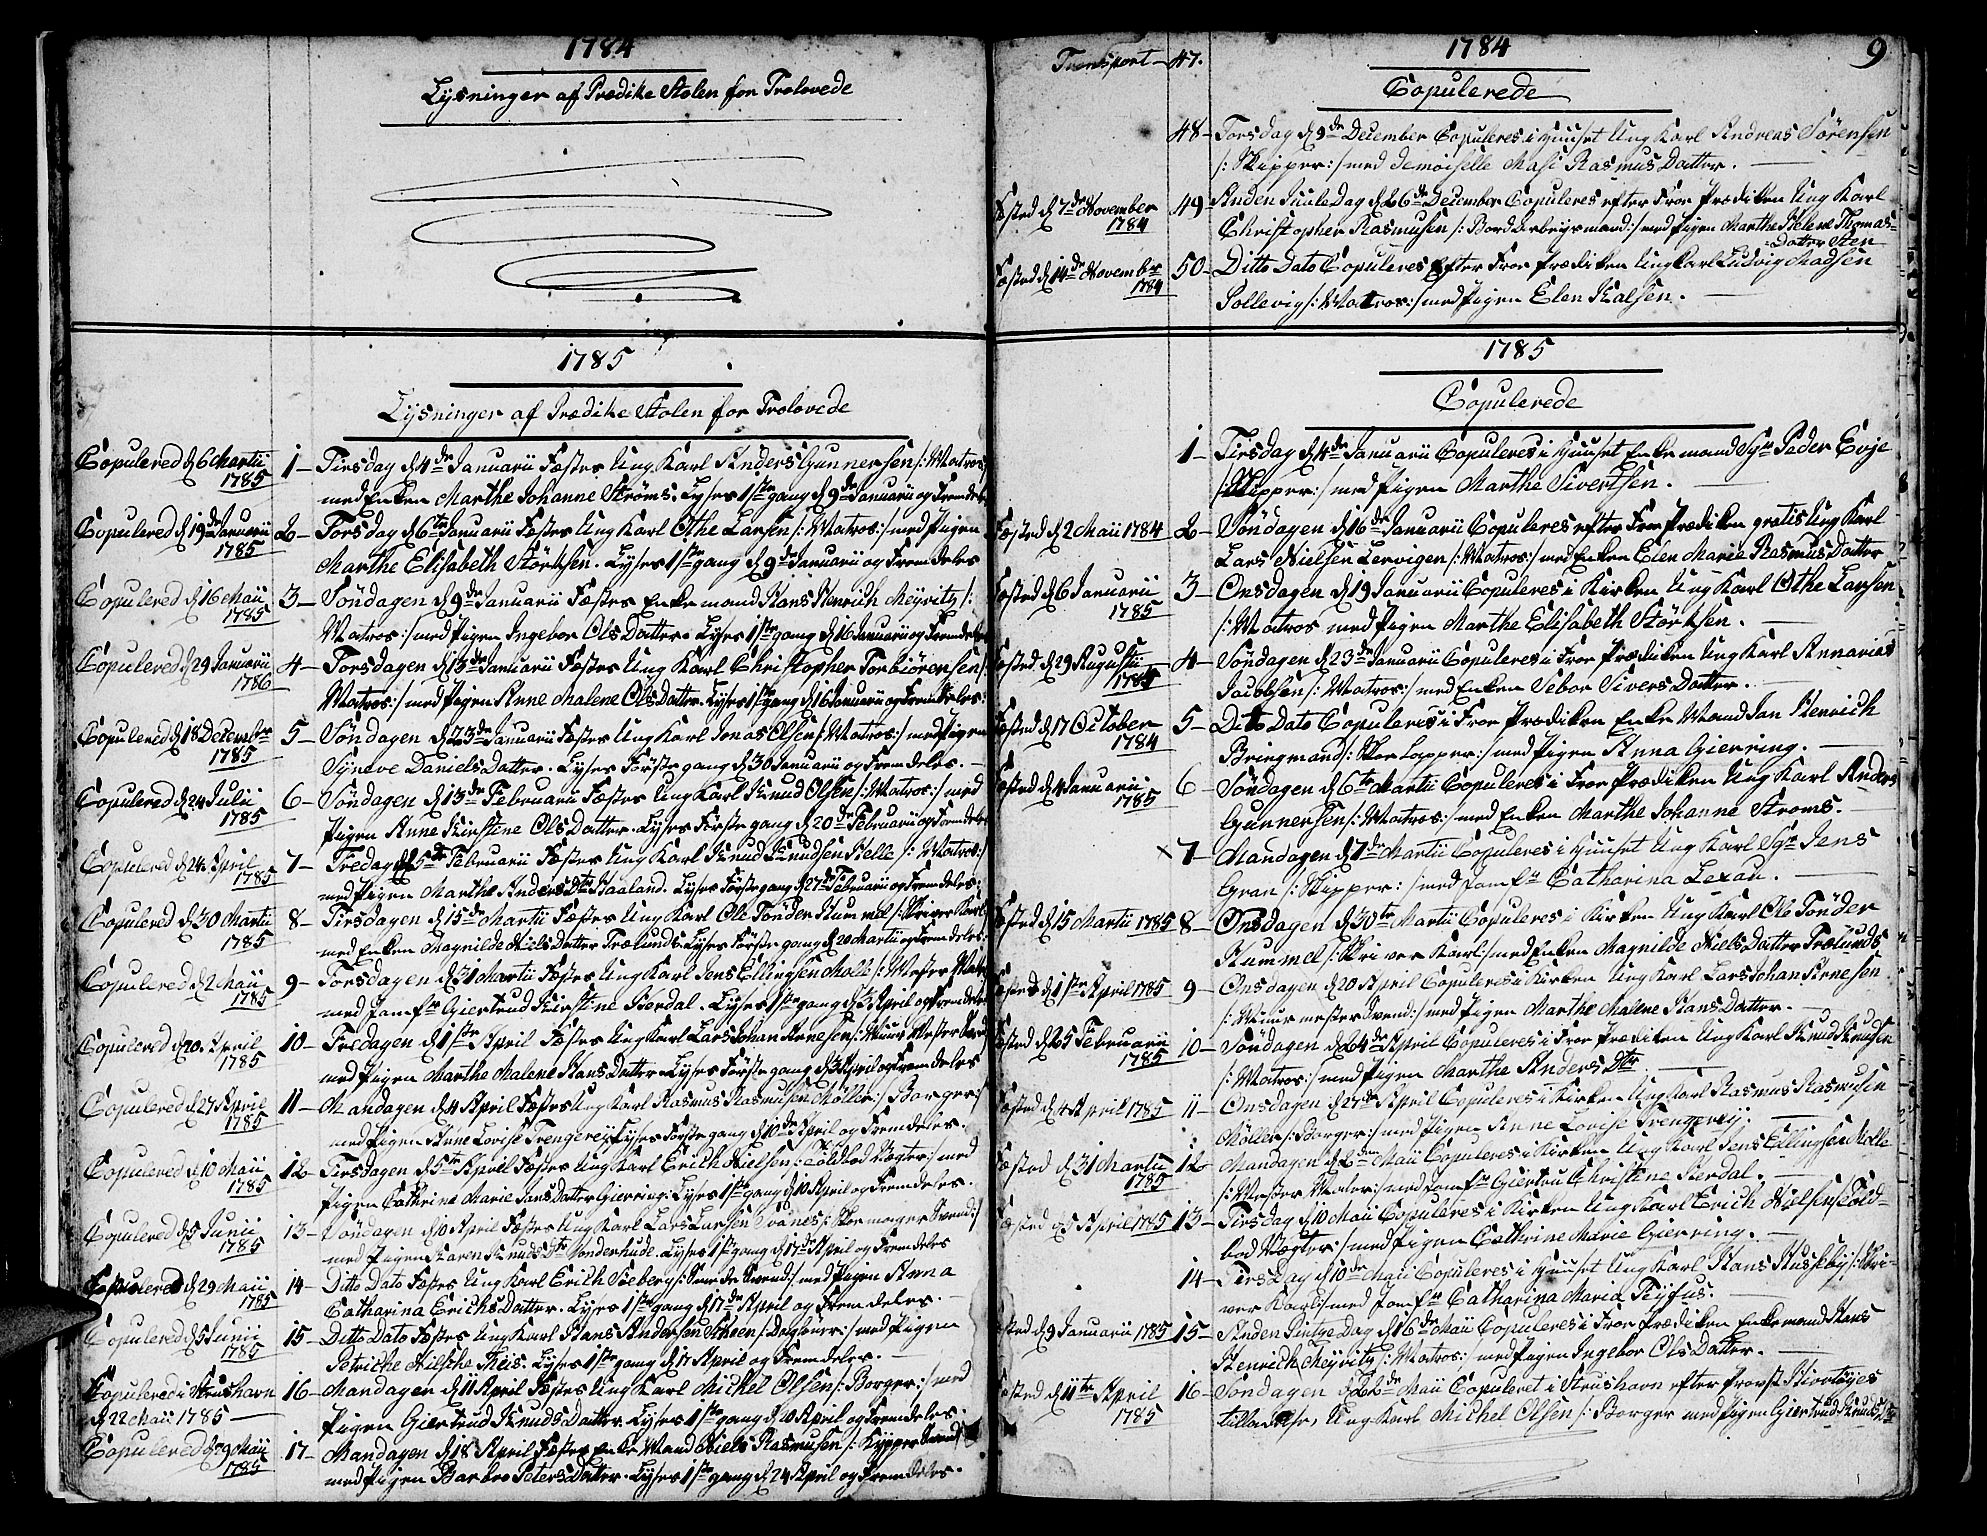 1784
Lysninger af Prædike Stolen for Trolovede
1785
Lysninger af Prædike Stolen for Trolovede
Copulered d 6 Martii 1785
1 – Tirsdag d 4de Januarii Fæstes Ung Karl Anders Gunnersen /: Matros
med Enken Marthe Johanne Strøms. Lyses 1ste gang d 9de Januarii og Fremdeles
Copulered d 19de Januarii 1785
2 – Torsdag d 6te Januarii Fæstes Ung Karl Othe Larsen /: Matros :/ med Pigen
Marthe Elisabeth Störksen. Lyses 1ste gang d 9de Januarii og Fremdeles
Copulered d 16 Maii 1785
3 – Söndagen d 9de Januarii Fæstes Enke mand Hans Henrich Meyvitz /:
Matros :/ med Pigen Ingebor Ols Datter. Lyses 1ste gang d 16 Januarii og Fremdeles
Copulered d 29 Januarii 1786
4 – Torsdagen d 13de Januarii Fæstes Ung Karl Christopher Torbiörensen /:
Matros :/ med Pigen Anne Malene Ols Datter. Lyses 1ste gang d 16 Januarii og Fremdeles.
Copulered d 18 December 1785
5 – Söndagen d 23de Januarii Fæstes Ung Karl Jonas Olsen /: Matros :/ med Pigen
Syneve Daniels Datter. Lyses Förste gang d 30 Januarii og Fremdeles. –
Copulered d 24 Julii 1785
6 – Söndagen d 13de Februarii Fæstes Ung Karl Knud Olsen /: Matros :/ med
Pigen Anne Kirstene Ols Datter. Lyses Förste gang d 20de Februarii og Fremdeles
Copulered d 24 April 1785
7 – Fredag d 25de Februarii Fæstes Ung Karl Knud Knudsen Helle /: Matros :/
med Pigen Marthe Anders Dtr Haaland. Lyses Förste gang d 27de Februarii og Fremdeles.
Copulered d 30 Martii 1785
8 – Tirsdagen d 15de Martii Fæstes Ung Karl Ole Tönder Hummel /: Skriver Karl
med Enken Magnilde Niels Datter Trælunds. Lyses Förste gang d 20 Martii og Fremdeles.
Copulered d 2 Maii 1785
9 – Torsdagen d 31 Martii Fæstes Ung Karl Jens Ellingsen Molle /: Mester
med Jomfr Giertrud Kirstine Kierdal. Lyses 1ste gang d 3 April og Fremdeles
Copulered d 20 April 1785
10 – Fredagen d 1ste April Fæstes Ung Karl Lars Johan Arnesen /: Muur Mester Svend
med Pigen Marthe Malene Hans Datter. Lyses Förste gang d 3 April og Fremdeles
Copulered d 27 April 1785
11 – Mandagen d 4 April Fæstes Ung Karl Rasmus Rasmusen Möller /: Borger :/
med Pigen Anne Lovise Trengereij. Lyses Förste gang d 10de April og Fremdeles.
Copulered d 10 Maii 1785
12 – Tirsdagen d 5te April Fæstes Ung Karl Erich Nielsen /: Toldbod Vægter :/ med
Pigen Cathrine Marie Jans Datter Gierring. Lyses 1ste gang d 10 April og Fremdeles.
Copulered d 5 Junii 1785
13 – Söndagen d 10 April Fæstes Ung Karl Lars Larsen Svanes /: Skomager Svend :/
med Pigen Karen Knuds Dtr Sönderhude. Lyses 1ste gang d 17de April og Fremdeles
Copulered d 29 Maii 1785
14 – Ditto Dato Fæstes Ung Karl Erich Soeberg /: Smede Svend :/ med Pigen Anna
Catharina Erichs Datter. Lyses 1ste gang d 17de April og Fremdeles. –
Copulered d 5 Junii 1785
15 – Ditto Dato Fæstes Ung Karl Hans Andersen Steen /: Dagleier :/ med Pigen
Petriche Nilsche Theis. Lyses 1ste gang d 17 April og Fremdeles. –
Copulered i Strushavn d 22 Maii 1785 –
16 – Mandagen d 11 April Fæstes Ung Karl Michel Olsen /: Borger :/ med
Pigen Giertrud Knuds Datter. Lyses 1ste gang d 10 April og Fremdeles.
Copulered d 29 Maii 1785
17 – Mandagen d 18 April Fæstes Enke Mand Niels Rasmusen /: Kypper Svend
med Pigen Barbro Peters Datter. Lyses 1ste gang d 24 April og Fremdeles.
9
Transport – 47.
1784
Copulerede
48 – Torsdag d 9de December Copuleres i Huuset Ung Karl Andreas Sörensen
/: Skipper :/ med Demoiselle Masi Rasmus Datter. –
Fæsted d 7de November 1784
49 – Anden Juule Dag d 26de December Copuleres efter Froe Prædiken Ung Karl
Christopher Rasmusen /: Bord Arbeyrsmand :/ med Pigen Marthe Helene Thomas-
Datter Sten
Fæsted d 14de November 1784
50 – Ditto Dato Copuleres Efter Froe Prædiken Ung Karl Ludvig Madsen
Sollevig /: Matros :/ med Pigen Elen Kalsen. –
1785
Copulerede
1 – Tirsdag d 4de Januarii Copuleres i Huuset Enkemand Sgr Peder Evje
/: Skipper :/ med Pigen Marthe Sivertsen. –
Fæsted d 2 Maii 1784
2 – Söndagen d 16de Januarii Copuleres efter Froe Prædiken gratis Ung Karl
Lars Nielsen Lervigen /: Matros :/ med Enken Elen Marie Rasmus Datter
Fæsted d 6 Januarii 1785
3 – Onsdagen d 19 Januarii Copuleres i Kirken Ung Karl Othe Larsen
/: Matros med Pigen Marthe Elisabeth Störksen. –
Fæsted d 29 Augustii 1785
4 – Söndagen d 23de Januarii Copuleres i Froe Prædiken Ung Karl Annanias
Jacobsen /: Matros :/ med Enken Sebor Sivers Datter. –
Fæsted d 17 October 1784
5 – Ditto Dato Copuleres i Froe Prædiken Enke Mand Jan Henrich
Bringmand /: Skoe Lapper :/ med Pigen Anna Gierring. –
Fæsted d 4 Januarii 1785
6 – Söndagen d 6te Martii Copuleres i Froe Prædiken Ung Karl Anders
Gunnersen /: Matros :/ med Enken Marthe Johanne Strøms.
× 7 – Mandagen d 7de Martii Copuleres i Huuset Ung Karl Sgr Jens
Gran /: Skipper :/ med Jomfr Catharina Lexau. –
Fæsted d 15 Martii 1785
8 – Onsdagen d 30te Martii Copuleres i Kirken Ung Karl Ole Tönder
Hummel /: Skriver Karl / med Enken Magnilde Niels Datter Trælunds
Fæsted d 1ste April 1785
9 – Onsdagen d 20 April Copuleres i Kirken Ung Karl Lars Johan Arnesen
/: Muur mester Svend :/ med Pigen Marthe Malene Hans Datter. –
Fæsted d 25 Februarii 1785
10 – Söndagen d 24de April Copuleres i Froe Prædiken Ung Karl Knud Knudsen
/: Matros :/ med Pigen Marthe Anders Dtr –
Fæsted d 4 April 1785
11 – Onsdagen d 27de April Copuleres i Kirken Ung Karl Rasmus Rasmusen
Möller /: Borger :/ med Pigen Anne Lovise Trengereij.
Fæsted d 31 Martii 1785
12 – Mandagen d 2den Maii Copuleres i Kirken Ung Karl Jens Ellingsen Molle
/: Mester :/ med Jomfr Giertru Christine Kierdal. –
Fæsted d 5 April 1785
13 – Tirsdag d 10 Maii Copuleres i Kirken Ung Karl Erich Nielsen /: Told-
bod Vægter :/ med Pigen Cathrine Marie Gierring. –
14 – Tirsdag d 10de Maii Copuleres i Huuset Ung Karl Hans Huseby /: Skri-
ver Karl :/ med Jomfr Catharina Maria Tyfus. –
Fæsted d 9 Januarii 1785
15 – Anden Pintze Dag d 16de Maii Copuleres i Froe Prædiken Enkemand Hans
Henrich Meyvitz /: Matros :/ med Pigen Ingebor Ols Datter. –
Fæsted d 11te April 1785
16 – Söndagen d 22de Maii Copuleret i Strushavn efter Provst Hiortöyes
tilladelse, Ung Karl Michel Olsen /: Borger med Pigen Giertrud Knuds Dtr